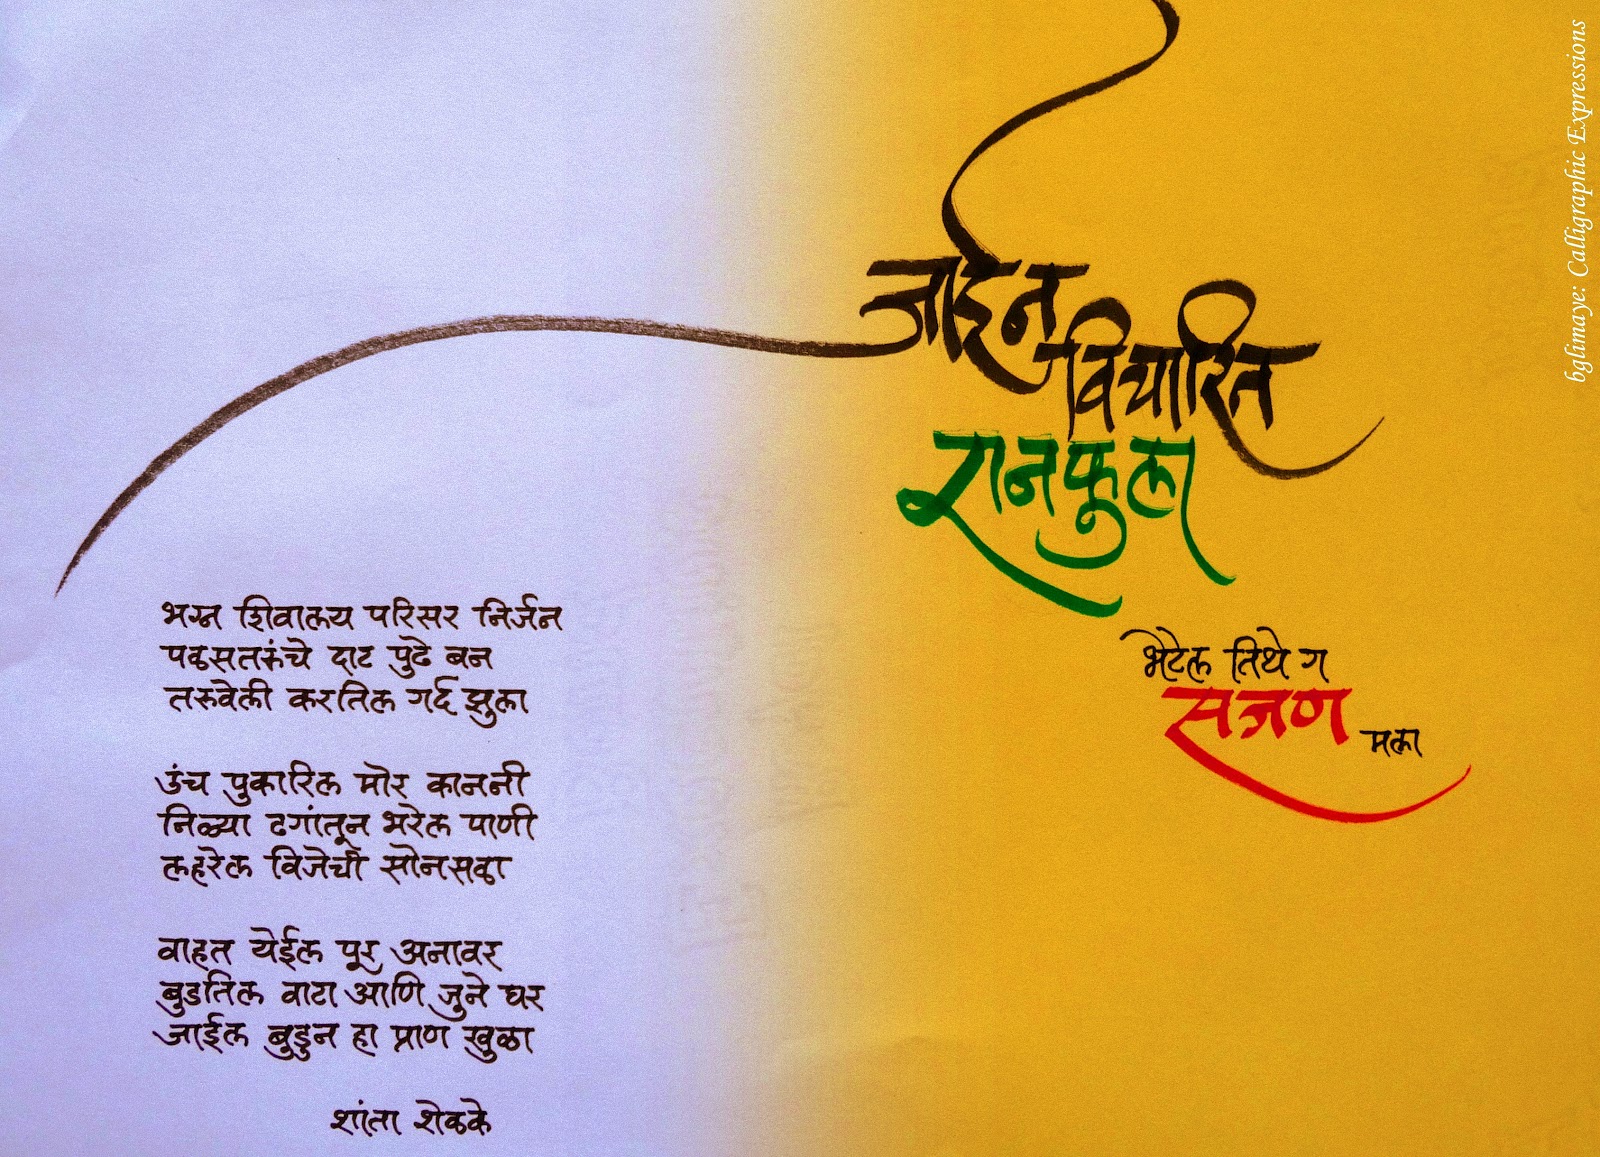 जाईन
विचारित
रानफुला
भेटेल तिथे ग
सजण
मला
भग्न शिवालय परिसर निर्जन
पळसतरूंचे दाट पुढे बन
तरुवेली करतिल गर्द झुला
उंच पुकारिल मोर काननी
निळ्या ढगांतून भरेल पाणी
लहरेल विजेची सोनसळा
वाहत येईल पूर अनावर
बुडतिल वाटा आणि जुने घर
जाईल बुडुन हा प्राण खुळा
शांता शेळके
bglimaye: Calligraphic Expressions